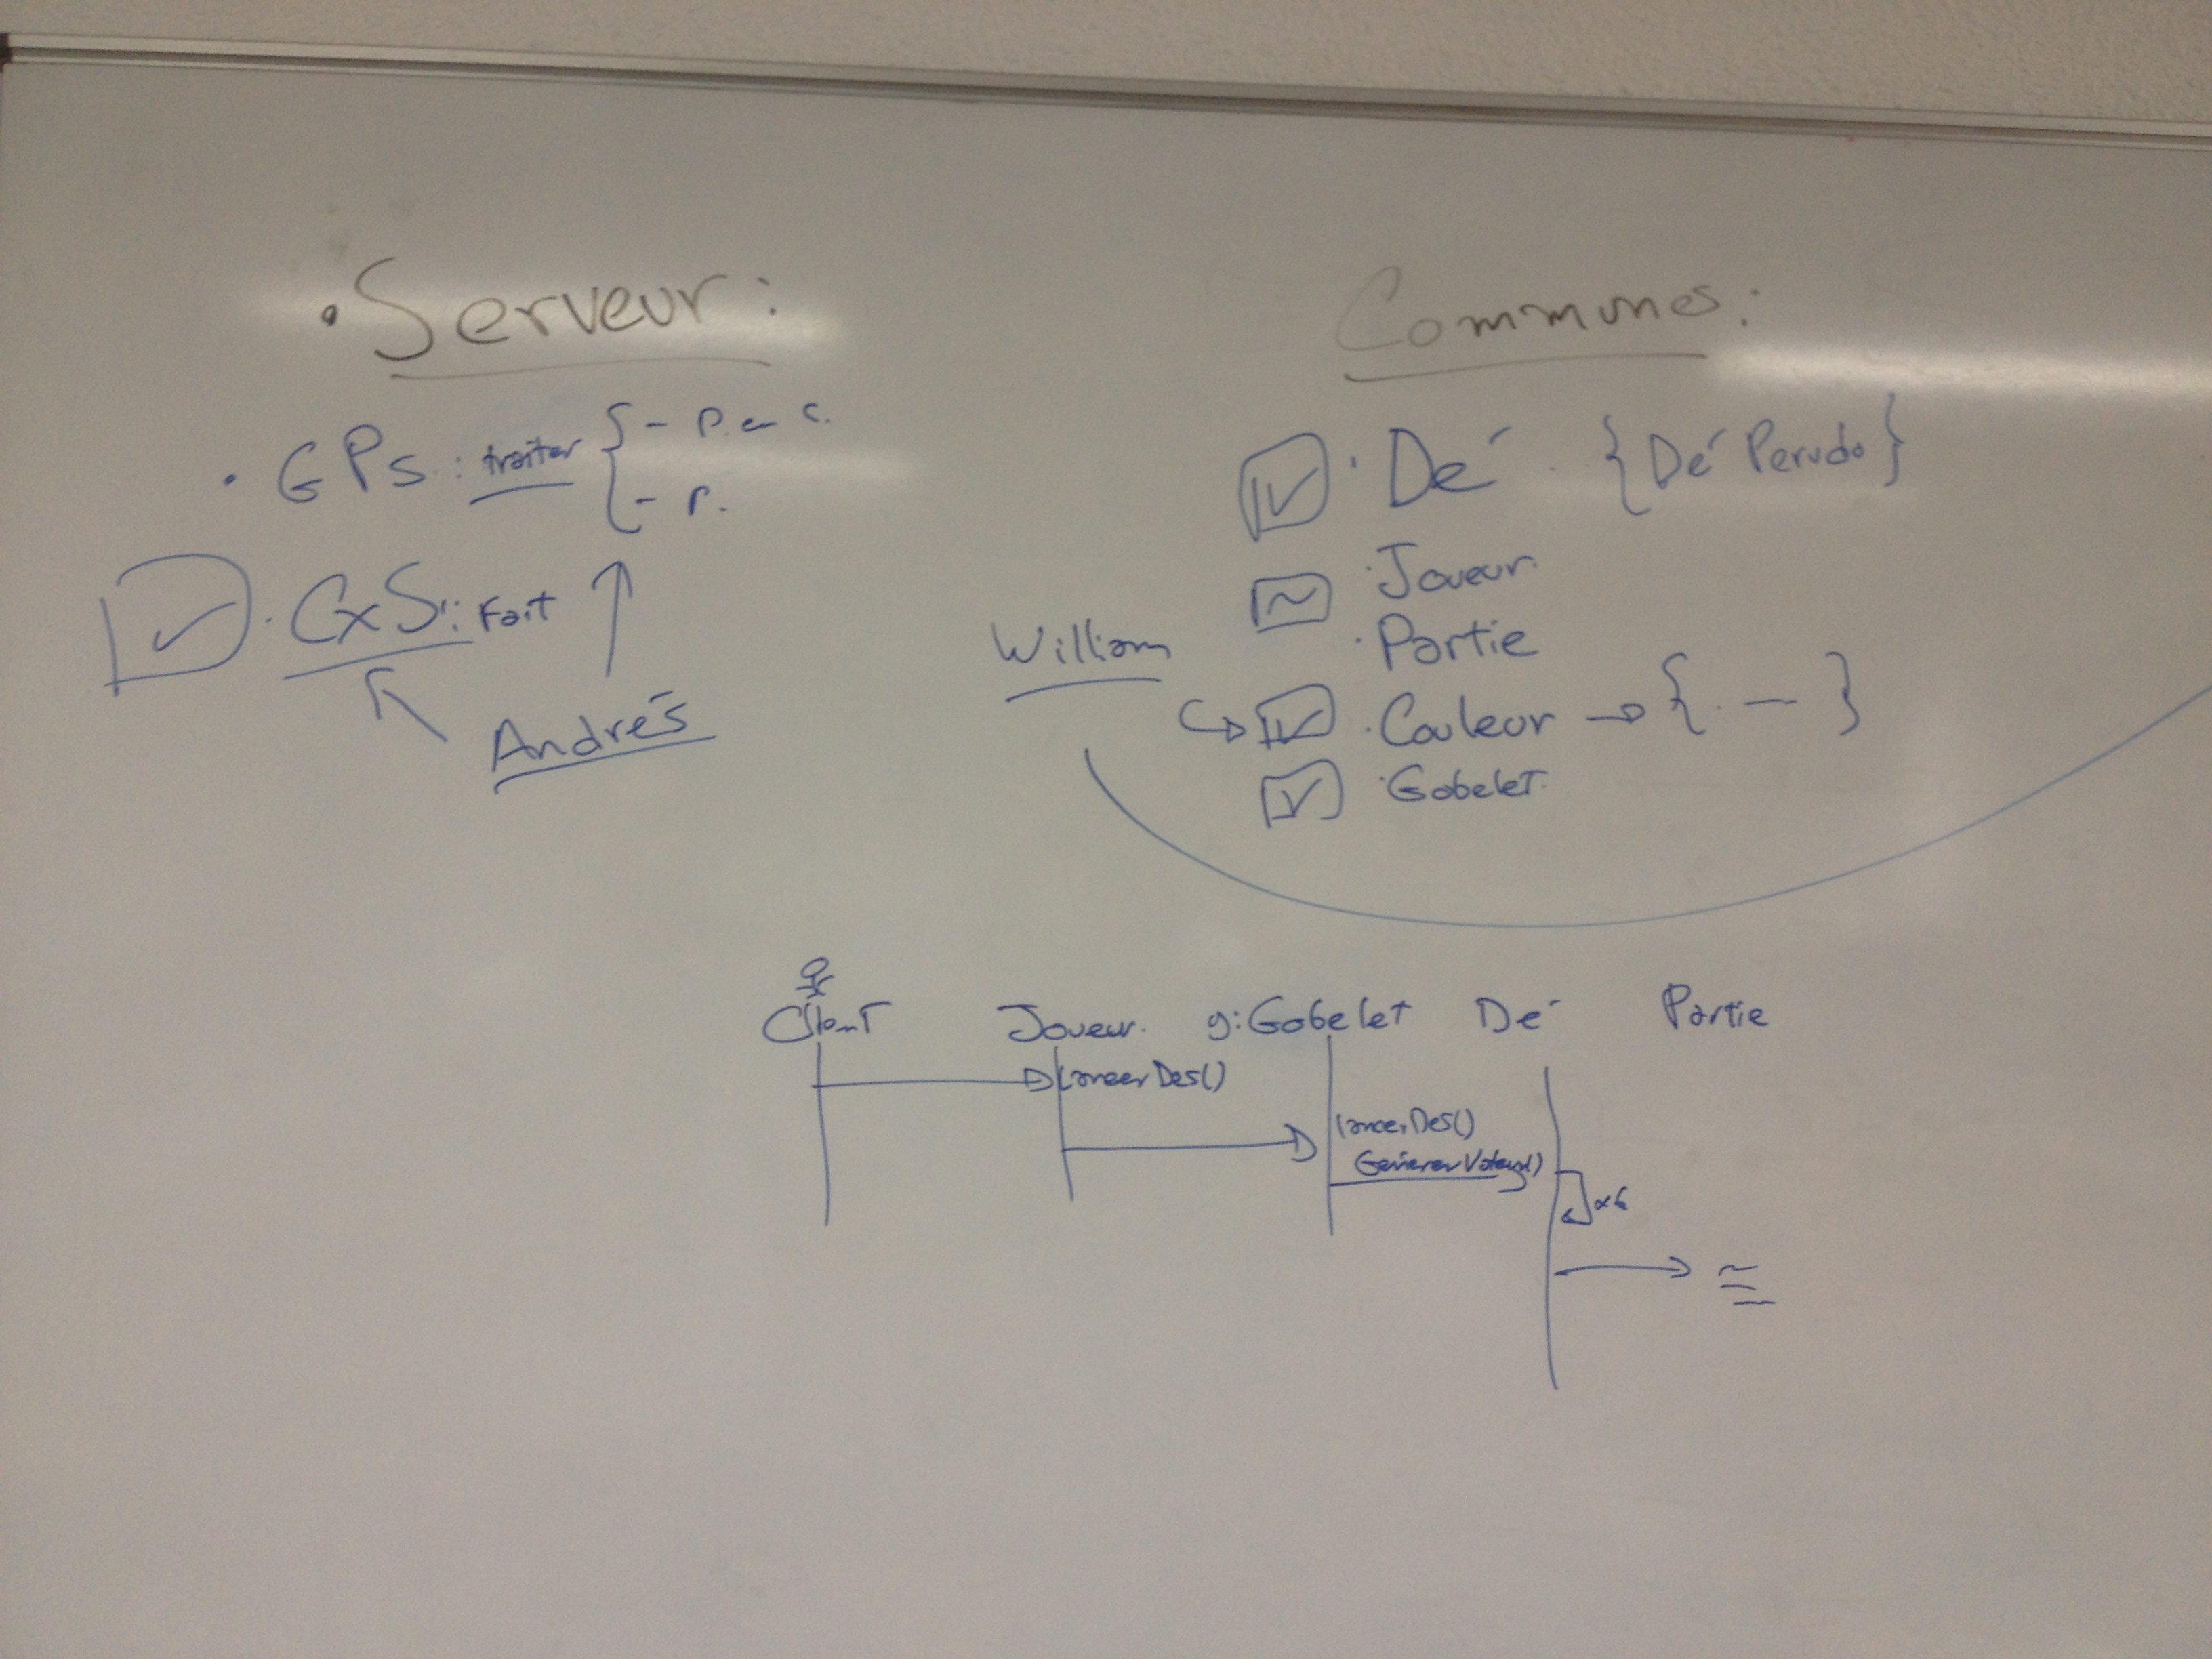 • Serveur :
• GPs : traiter { - P. en c.
- P.
• CxS : Fait
Andrés
Communes :
• Dé {Dé Perudo}
• Joueur
• Partie
William
• Couleur → { . — }
• Gobelet
Client Joueur g:Gobelet Dé Partie
lancerDes()
lancerDes()
GenererValeur()
x6